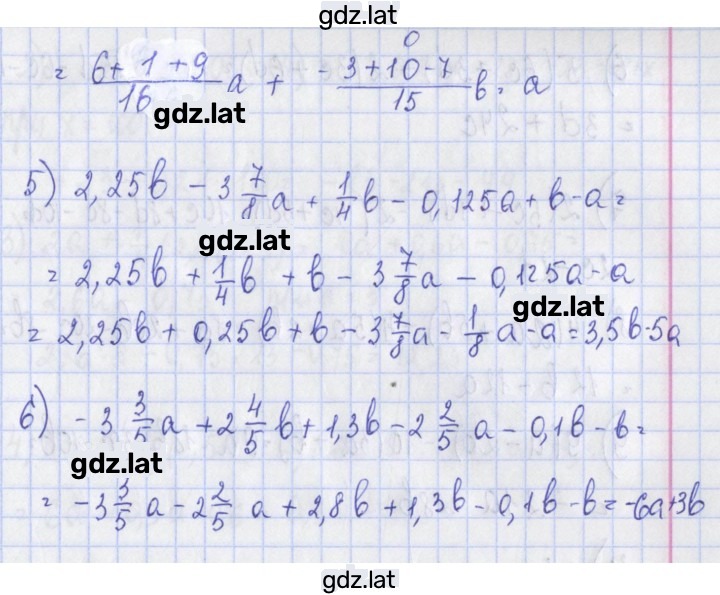 gdz.lat
= (6 + 1 + 9)/16 a + (-3 + 10 - 7)/15 b = a
0
gdz.lat
5) 2,25b - 3 7/8 a + 1/4 b - 0,125a + b - a =
gdz.lat
= 2,25b + 1/4 b + b - 3 7/8 a - 0,125a - a
gdz.lat
= 2,25b + 0,25b + b - 3 7/8 a - 1/8 a - a = 3,5b - 5a
6) - 3 3/5 a + 2 4/5 b + 1,3b - 2 2/5 a - 0,1b - b =
gdz.lat
= - 3 3/5 a - 2 2/5 a + 2,8b + 1,3b - 0,1b - b = -6a + 3b
gdz.lat